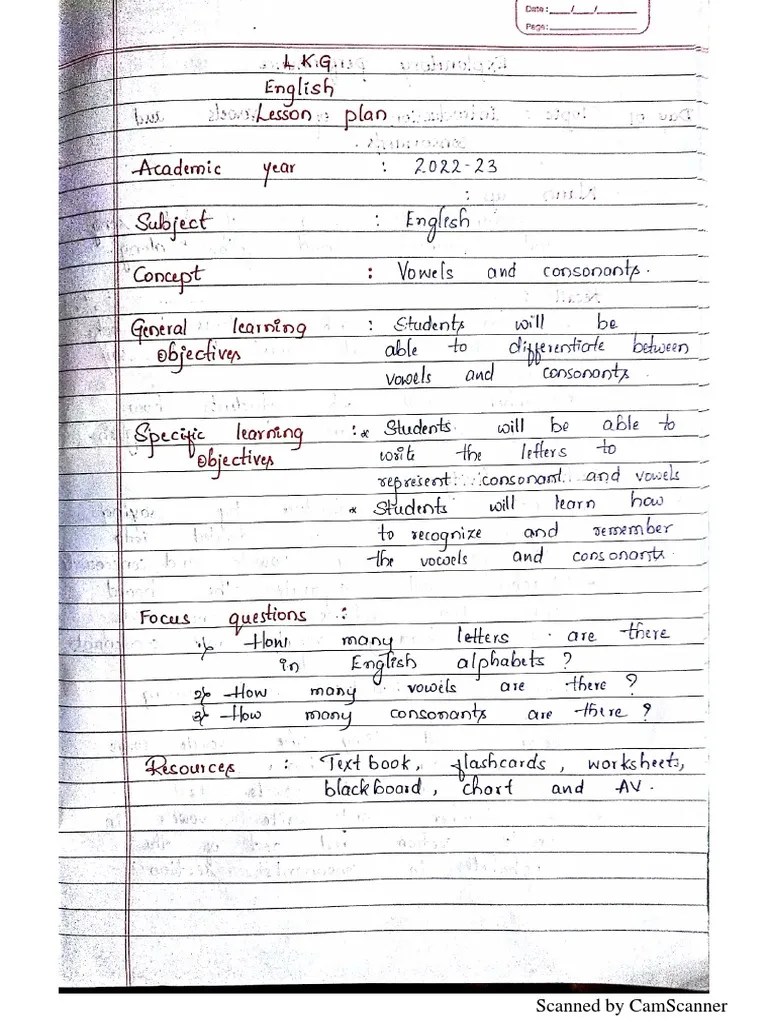 Date: ___/___/______
Page: ______
L.K.G
English
Lesson plan
Academic year : 2022-23
Subject : English
Concept : Vowels and consonants.
General learning : Students will be
objectives able to differentiate between
vowels and consonants.
Specific learning :* Students will be able to
objectives write the letters to
represent consonant and vowels
* Students will learn how
to recognize and remember
the vowels and consonants.
Focus questions :
1) How many letters are there
in English alphabets ?
2) How many vowels are there ?
3) How many consonants are there ?
Resources : Text book, flashcards, worksheets,
blackboard, chart and AV.
Scanned by CamScanner